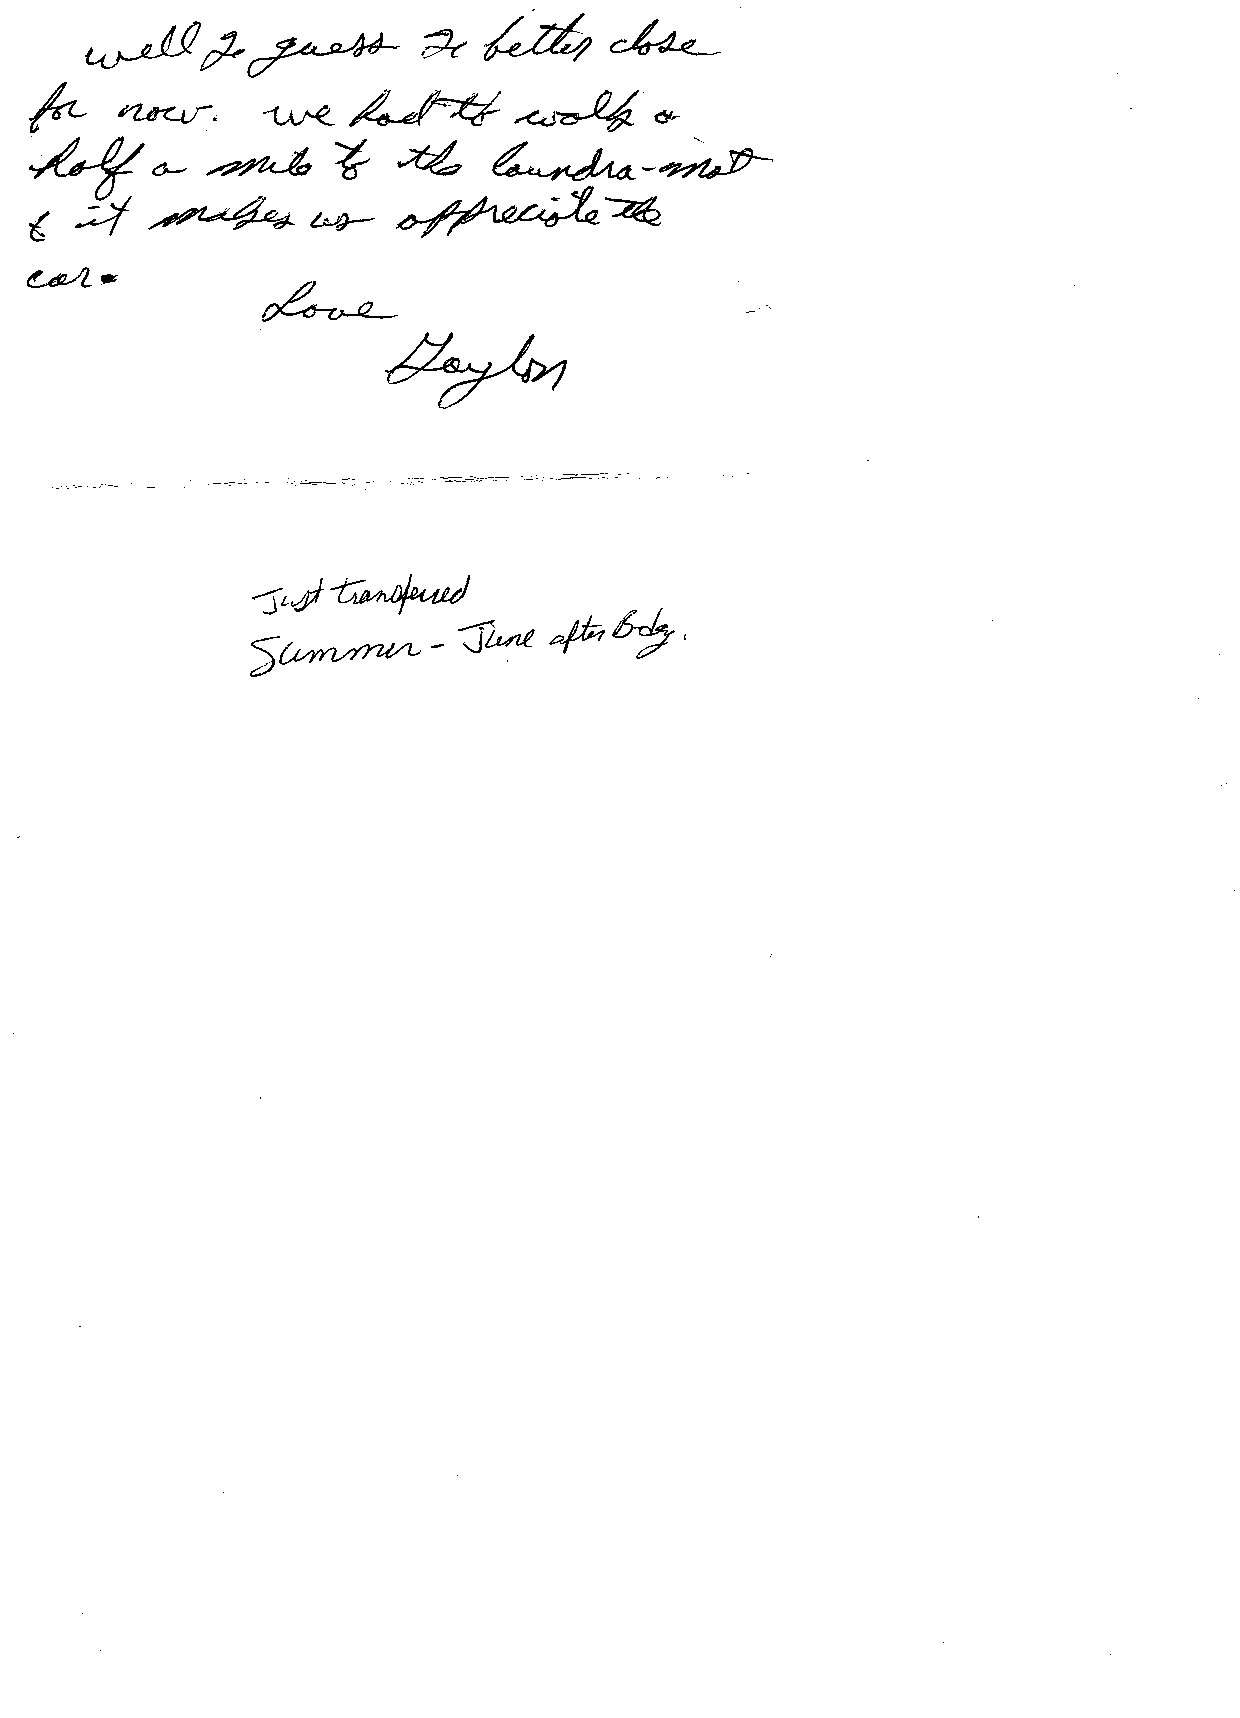 well I guess I better close
for now. we had to walk a
half a mile to the laundra-mat
& it makes us appreciate the
car.
Love
Gaylon
Just transferred
Summer - June after Bday.